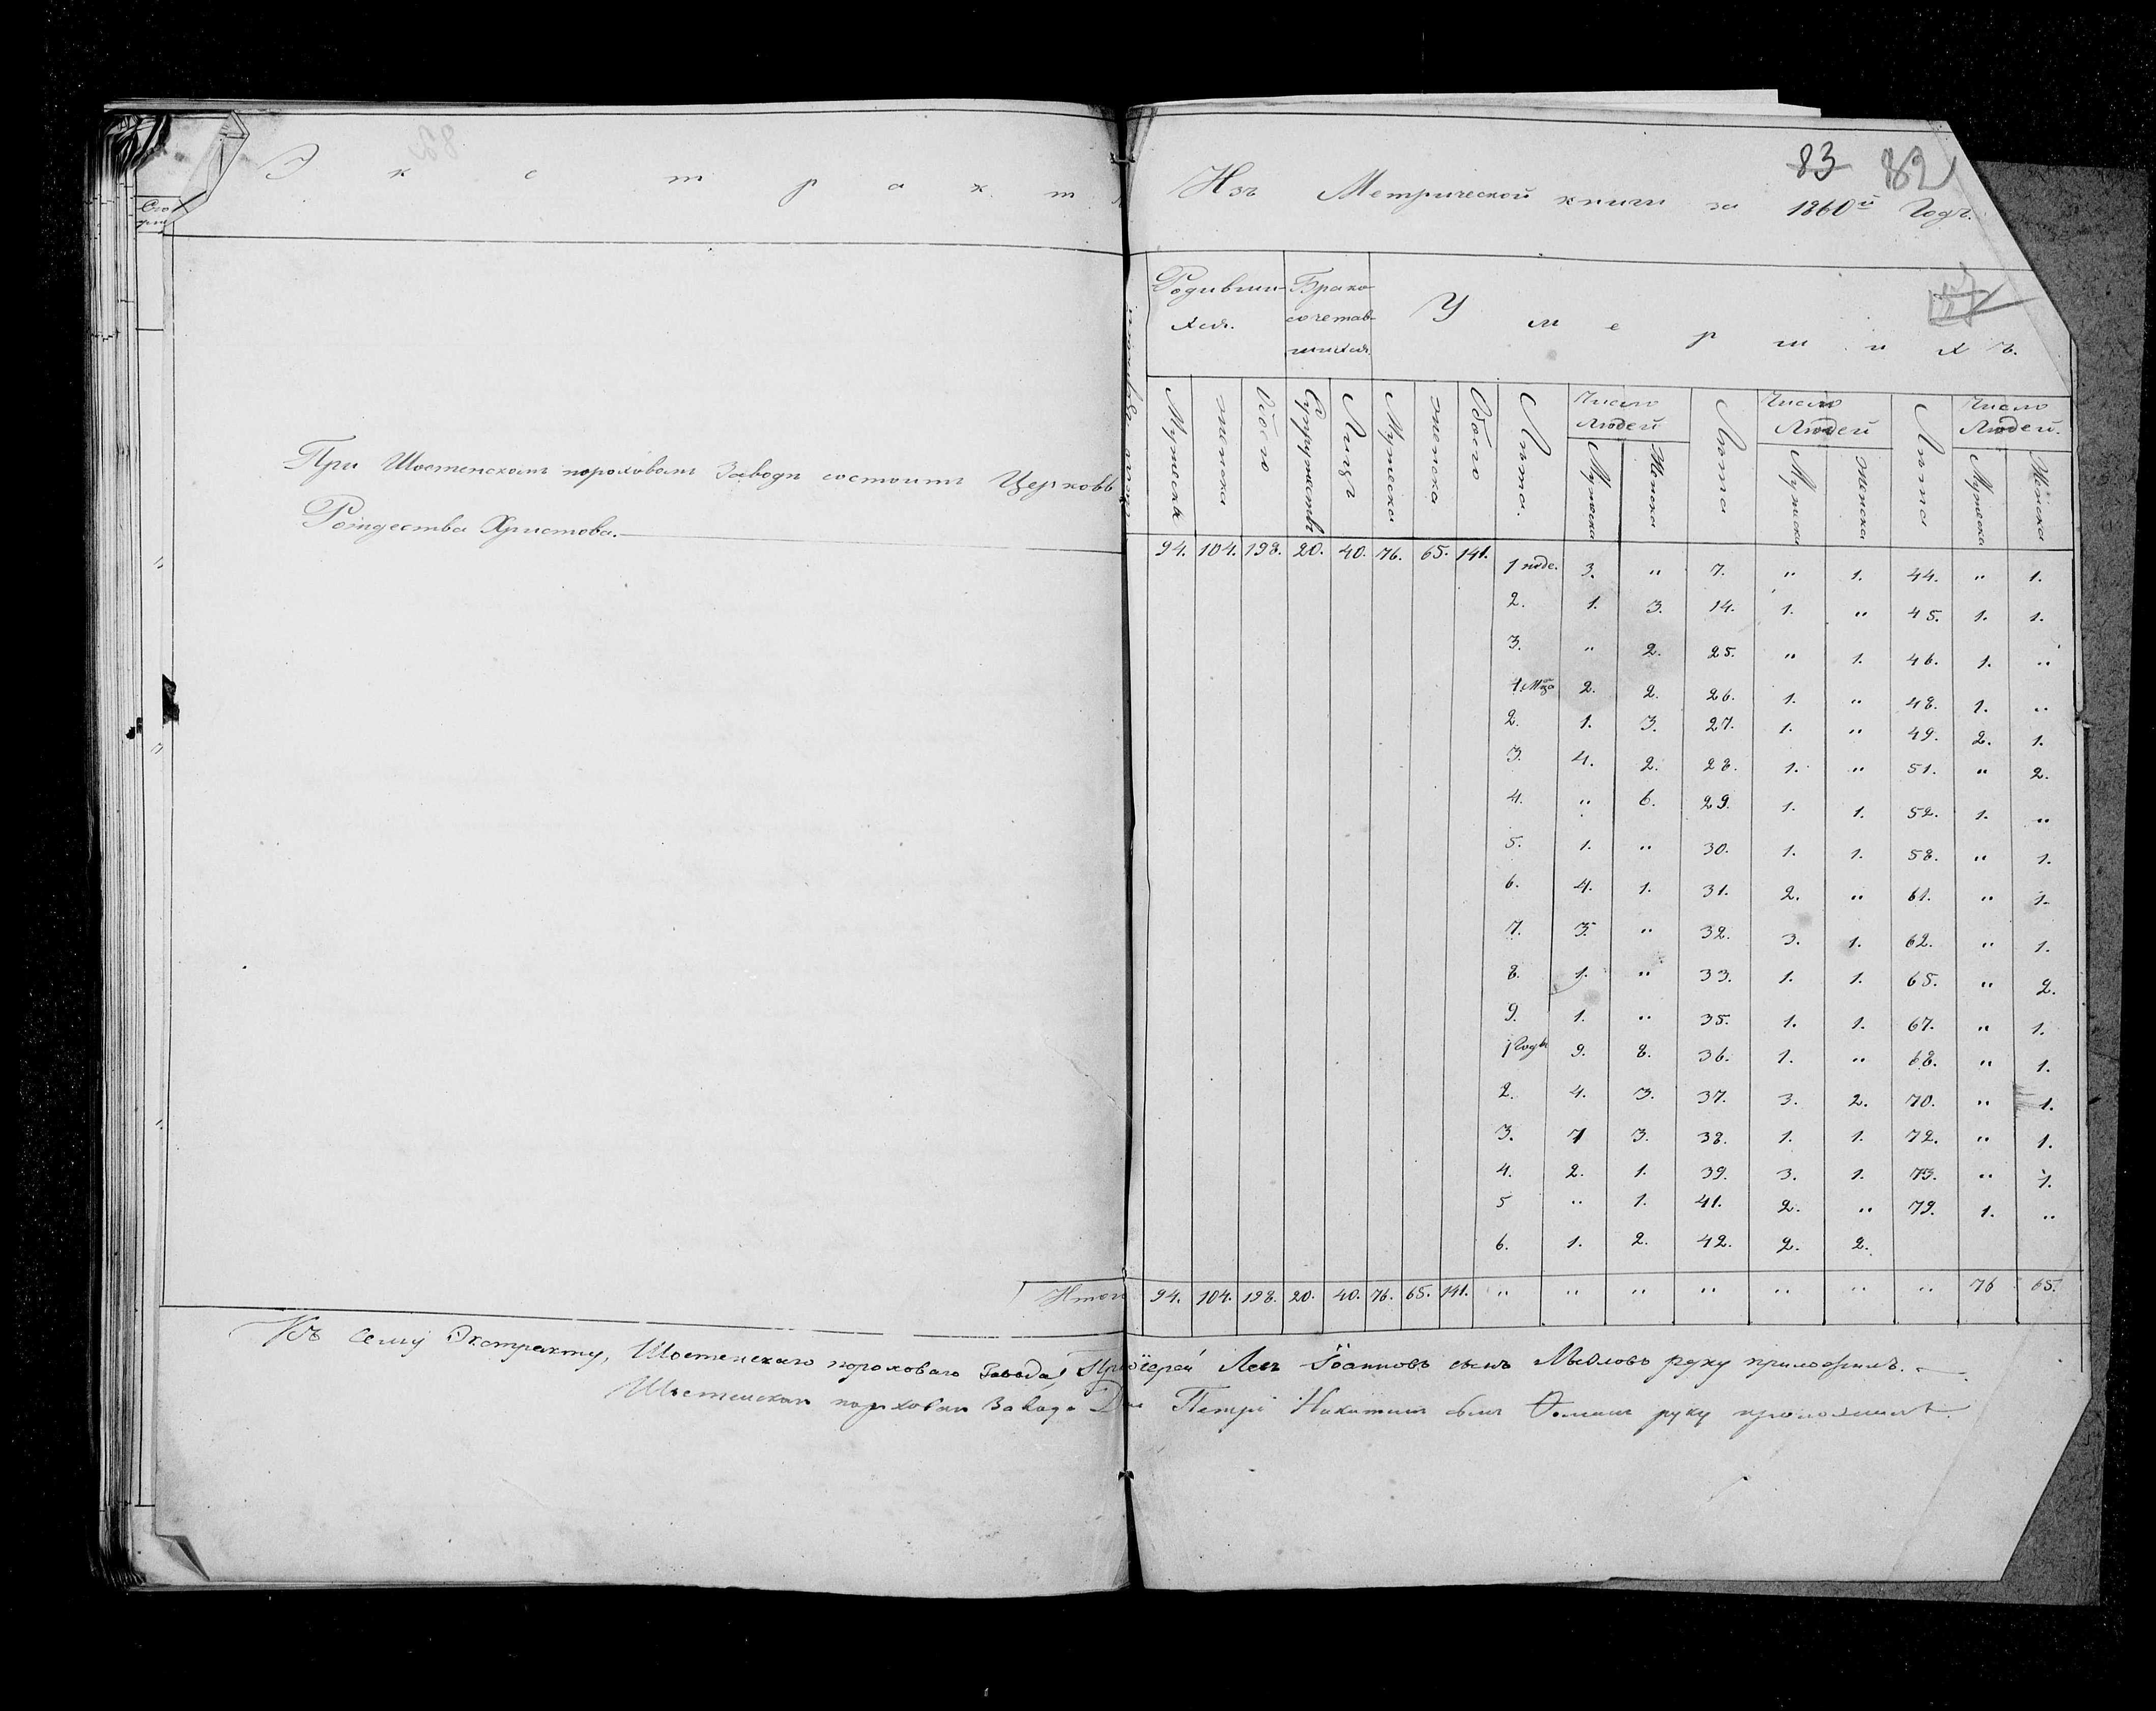 83 82
Экстрактъ Изъ Метрической книги за 1860й Годъ.
Родивши- Брако- Умершихъ.
хся. сочетав-
шихся
Мужеска женска Обоего Супружствъ Лицъ Мужеска женска Обоего Лѣта. Число Людей Лѣта Число Людей Лѣта Число Людей.
Мужеска Женска Мужеска Женска Мужеска Женска
При Шостенскомъ пороховомъ Заводѣ состоитъ Церковь
Рождества Христова.
94. 104. 198. 20. 40. 76. 65. 141.
1 неде. 3. " 7. " 1. 44. " 1.
2. 1. 3. 14. 1. " 45. 1. 1.
3. " 2. 25. " 1. 46. 1. "
1. Мца 2. 2. 26. 1. " 48. 1. "
2. 1. 3. 27. 1. " 49. 2. 1.
3. 4. 2. 28. 1. " 51. " 2.
4. " 6. 29. 1. 1. 52. 1. "
5. 1. " 30. 1. 1. 58. " 1.
6. 4. 1. 31. 2. " 61. " 1.
7. 3. " 32. 3. 1. 62. " 1.
8. 1. " 33. 1. 1. 65. " 2.
9. 1. " 35. 1. 1. 67. " 1.
1 Годъ 9. 8. 36. 1. " 68. " 1.
2. 4. 3. 37. 3. 2. 70. " 1.
3. 7 3. 38. 1. 1. 72. " 1.
4. 2. 1. 39. 3. 1. 73. " 1.
5 " 1. 41. 2. " 79. 1. "
6. 1. 2. 42. 2. 2.
Итого 94. 104. 198. 20. 40. 76. 65. 141. " " " " " " " 76 65.
Къ сему Экстракту, Шостенскаго пороховаго Завода Іоанновъ сынъ руку приложилъ.
Завода Петръ Никитинъ сынъ руку приложилъ.